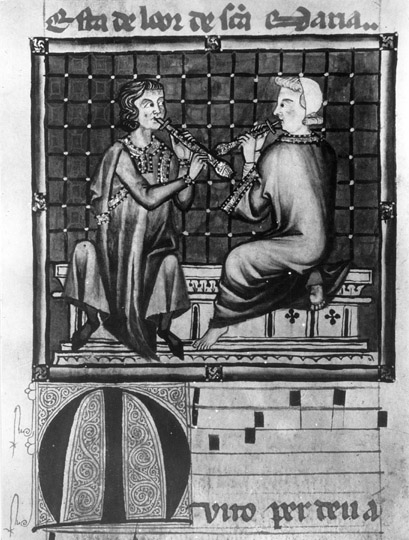 Esta de loor de sc̃a Maria..
Muito per deu a